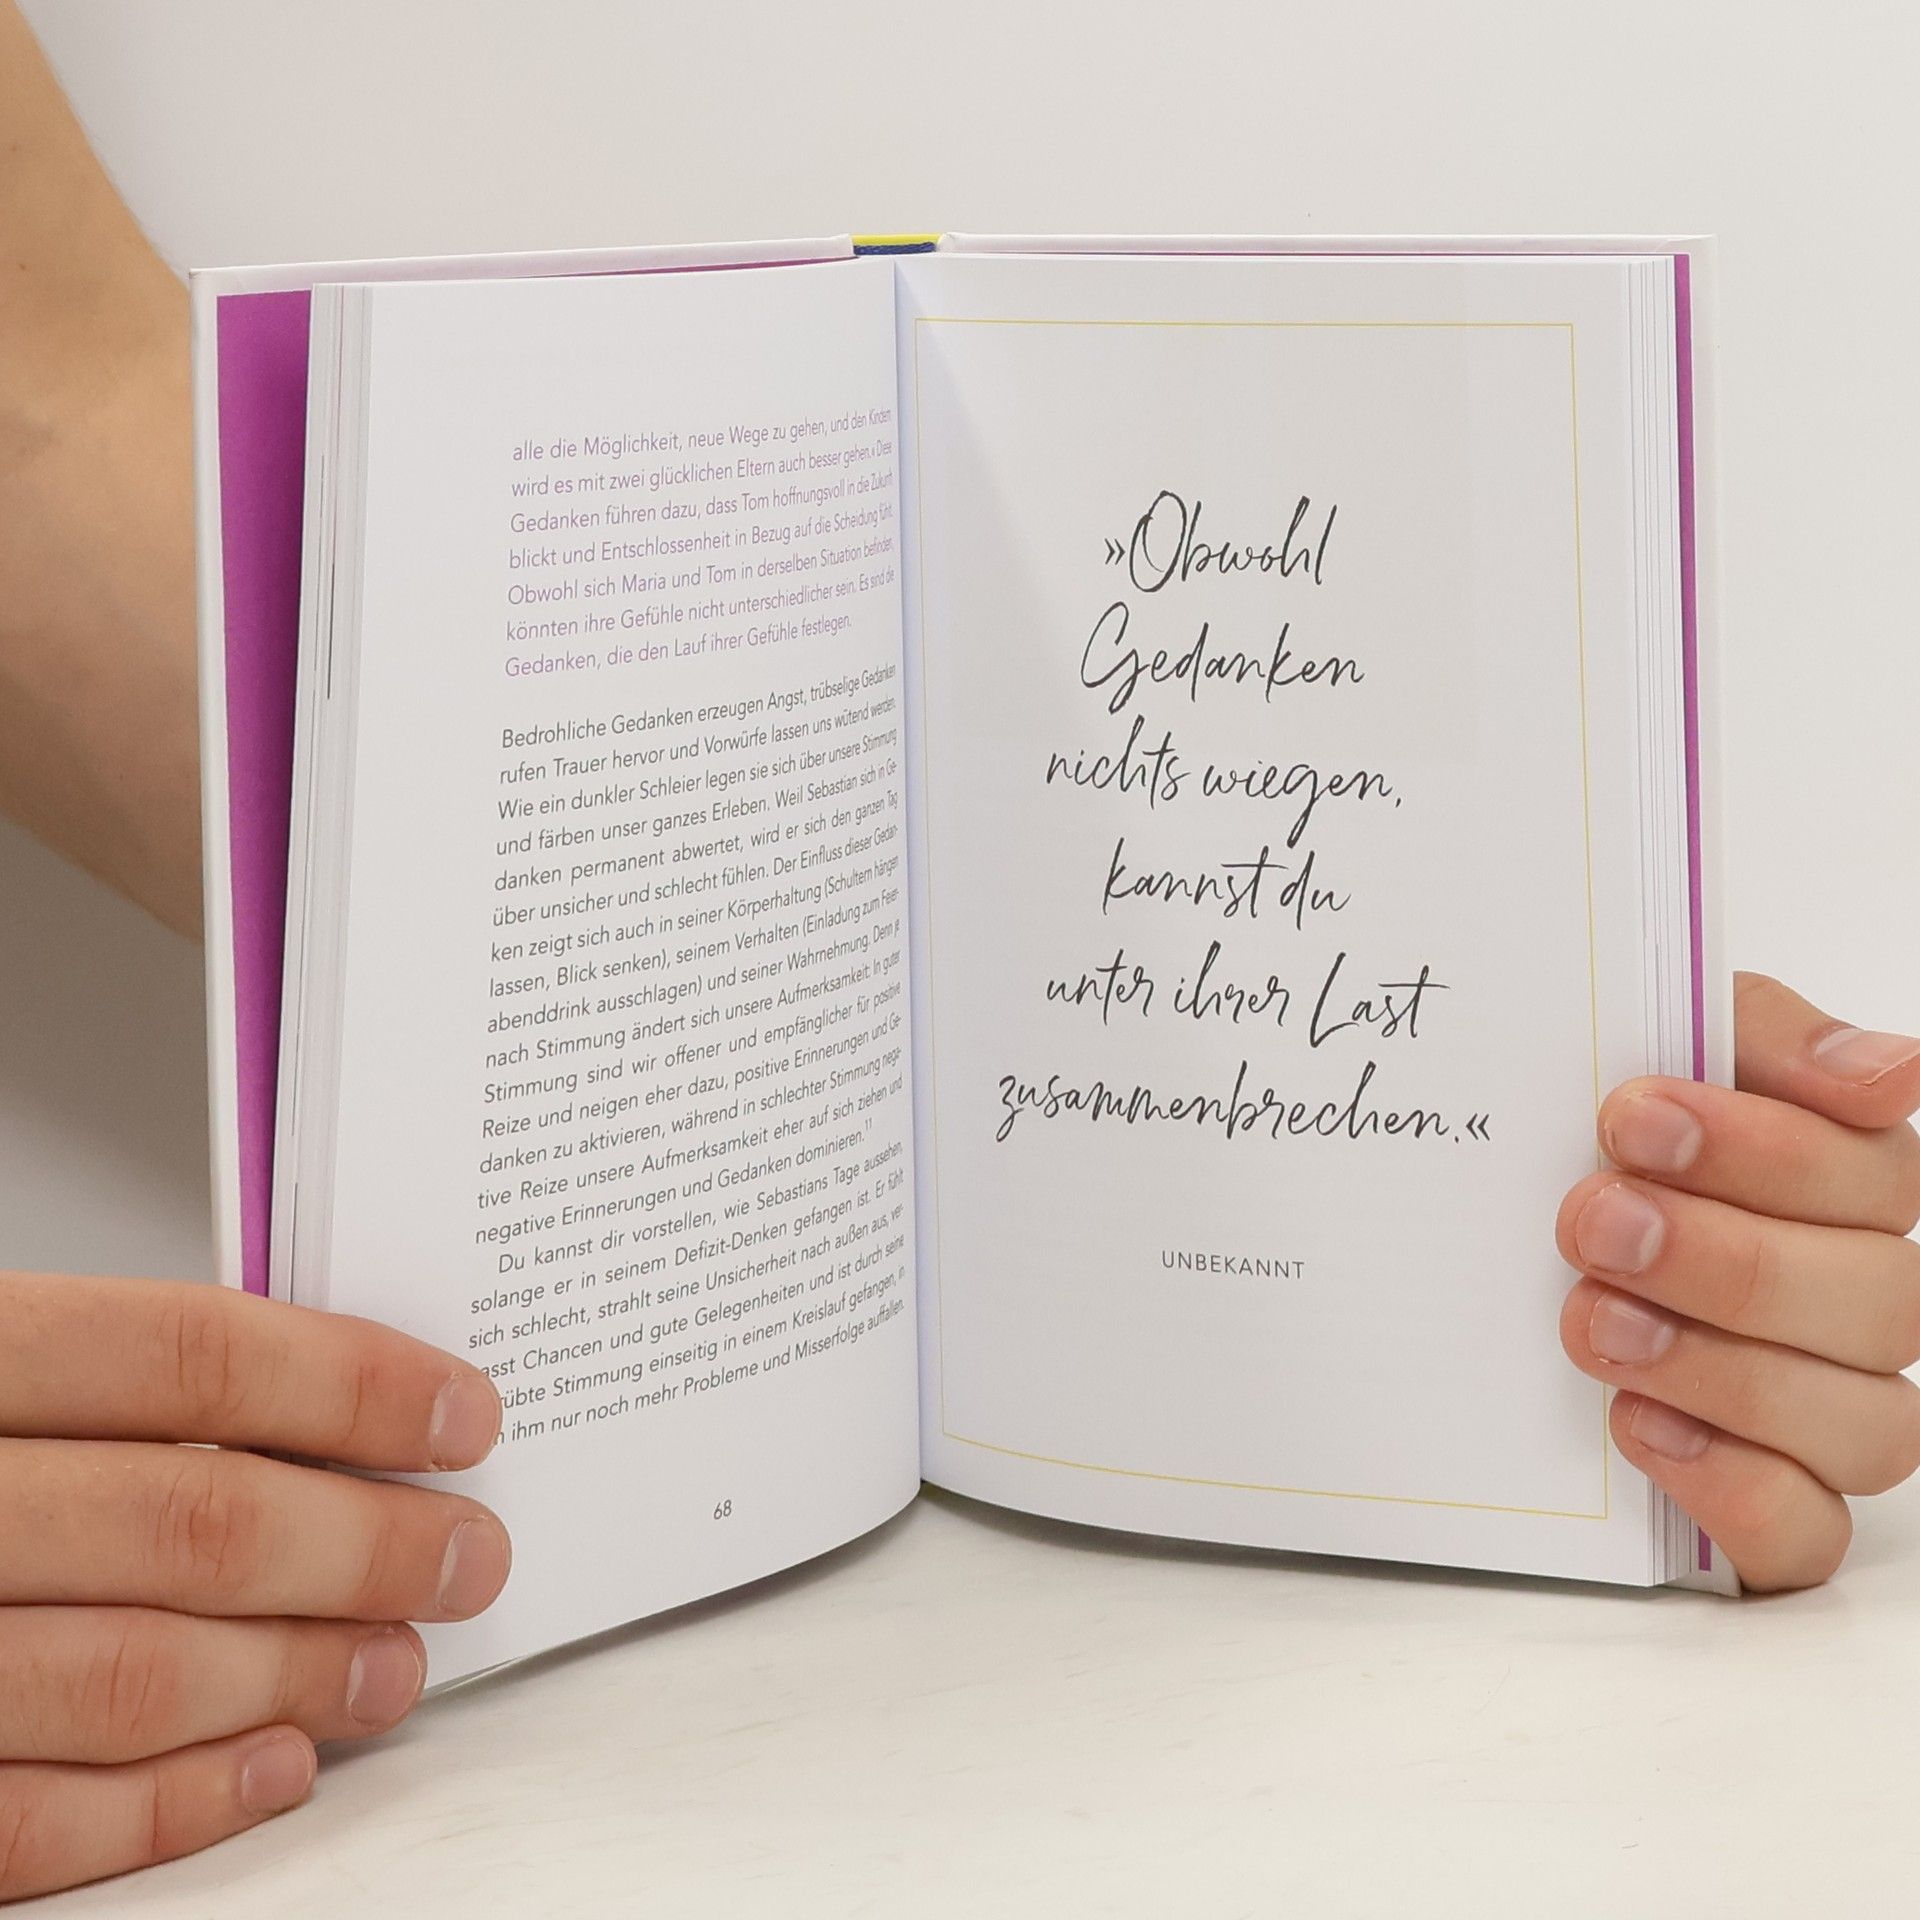 alle die Möglichkeit, neue Wege zu gehen, und den Kindern
wird es mit zwei glücklichen Eltern auch besser gehen.« Diese
Gedanken führen dazu, dass Tom hoffnungsvoll in die Zukunft
blickt und Entschlossenheit in Bezug auf die Scheidung fühlt.
Obwohl sich Maria und Tom in derselben Situation befinden,
könnten ihre Gefühle nicht unterschiedlicher sein. Es sind die
Gedanken, die den Lauf ihrer Gefühle festlegen.
Bedrohliche Gedanken erzeugen Angst, trübselige Gedanken
rufen Trauer hervor und Vorwürfe lassen uns wütend werden.
Wie ein dunkler Schleier legen sie sich über unsere Stimmung
und färben unser ganzes Erleben. Weil Sebastian sich in Ge-
danken permanent abwertet, wird er sich den ganzen Tag
über unsicher und schlecht fühlen. Der Einfluss dieser Gedan-
ken zeigt sich auch in seiner Körperhaltung (Schultern hängen
lassen, Blick senken), seinem Verhalten (Einladung zum Feier-
abenddrink ausschlagen) und seiner Wahrnehmung. Denn je
nach Stimmung ändert sich unsere Aufmerksamkeit: In guter
Stimmung sind wir offener und empfänglicher für positive
Reize und neigen eher dazu, positive Erinnerungen und Ge-
danken zu aktivieren, während in schlechter Stimmung nega-
tive Reize unsere Aufmerksamkeit eher auf sich ziehen und
negative Erinnerungen und Gedanken dominieren.11
Du kannst dir vorstellen, wie Sebastians Tage aussehen,
solange er in seinem Defizit-Denken gefangen ist. Er fühlt
sich schlecht, strahlt seine Unsicherheit nach außen aus, ver-
asst Chancen und gute Gelegenheiten und ist durch seine
rübte Stimmung einseitig in einem Kreislauf gefangen, in
ihm nur noch mehr Probleme und Misserfolge auffallen.
68
»Obwohl
Gedanken
nichts wiegen,
kannst du
unter ihrer Last
zusammenbrechen.«
UNBEKANNT